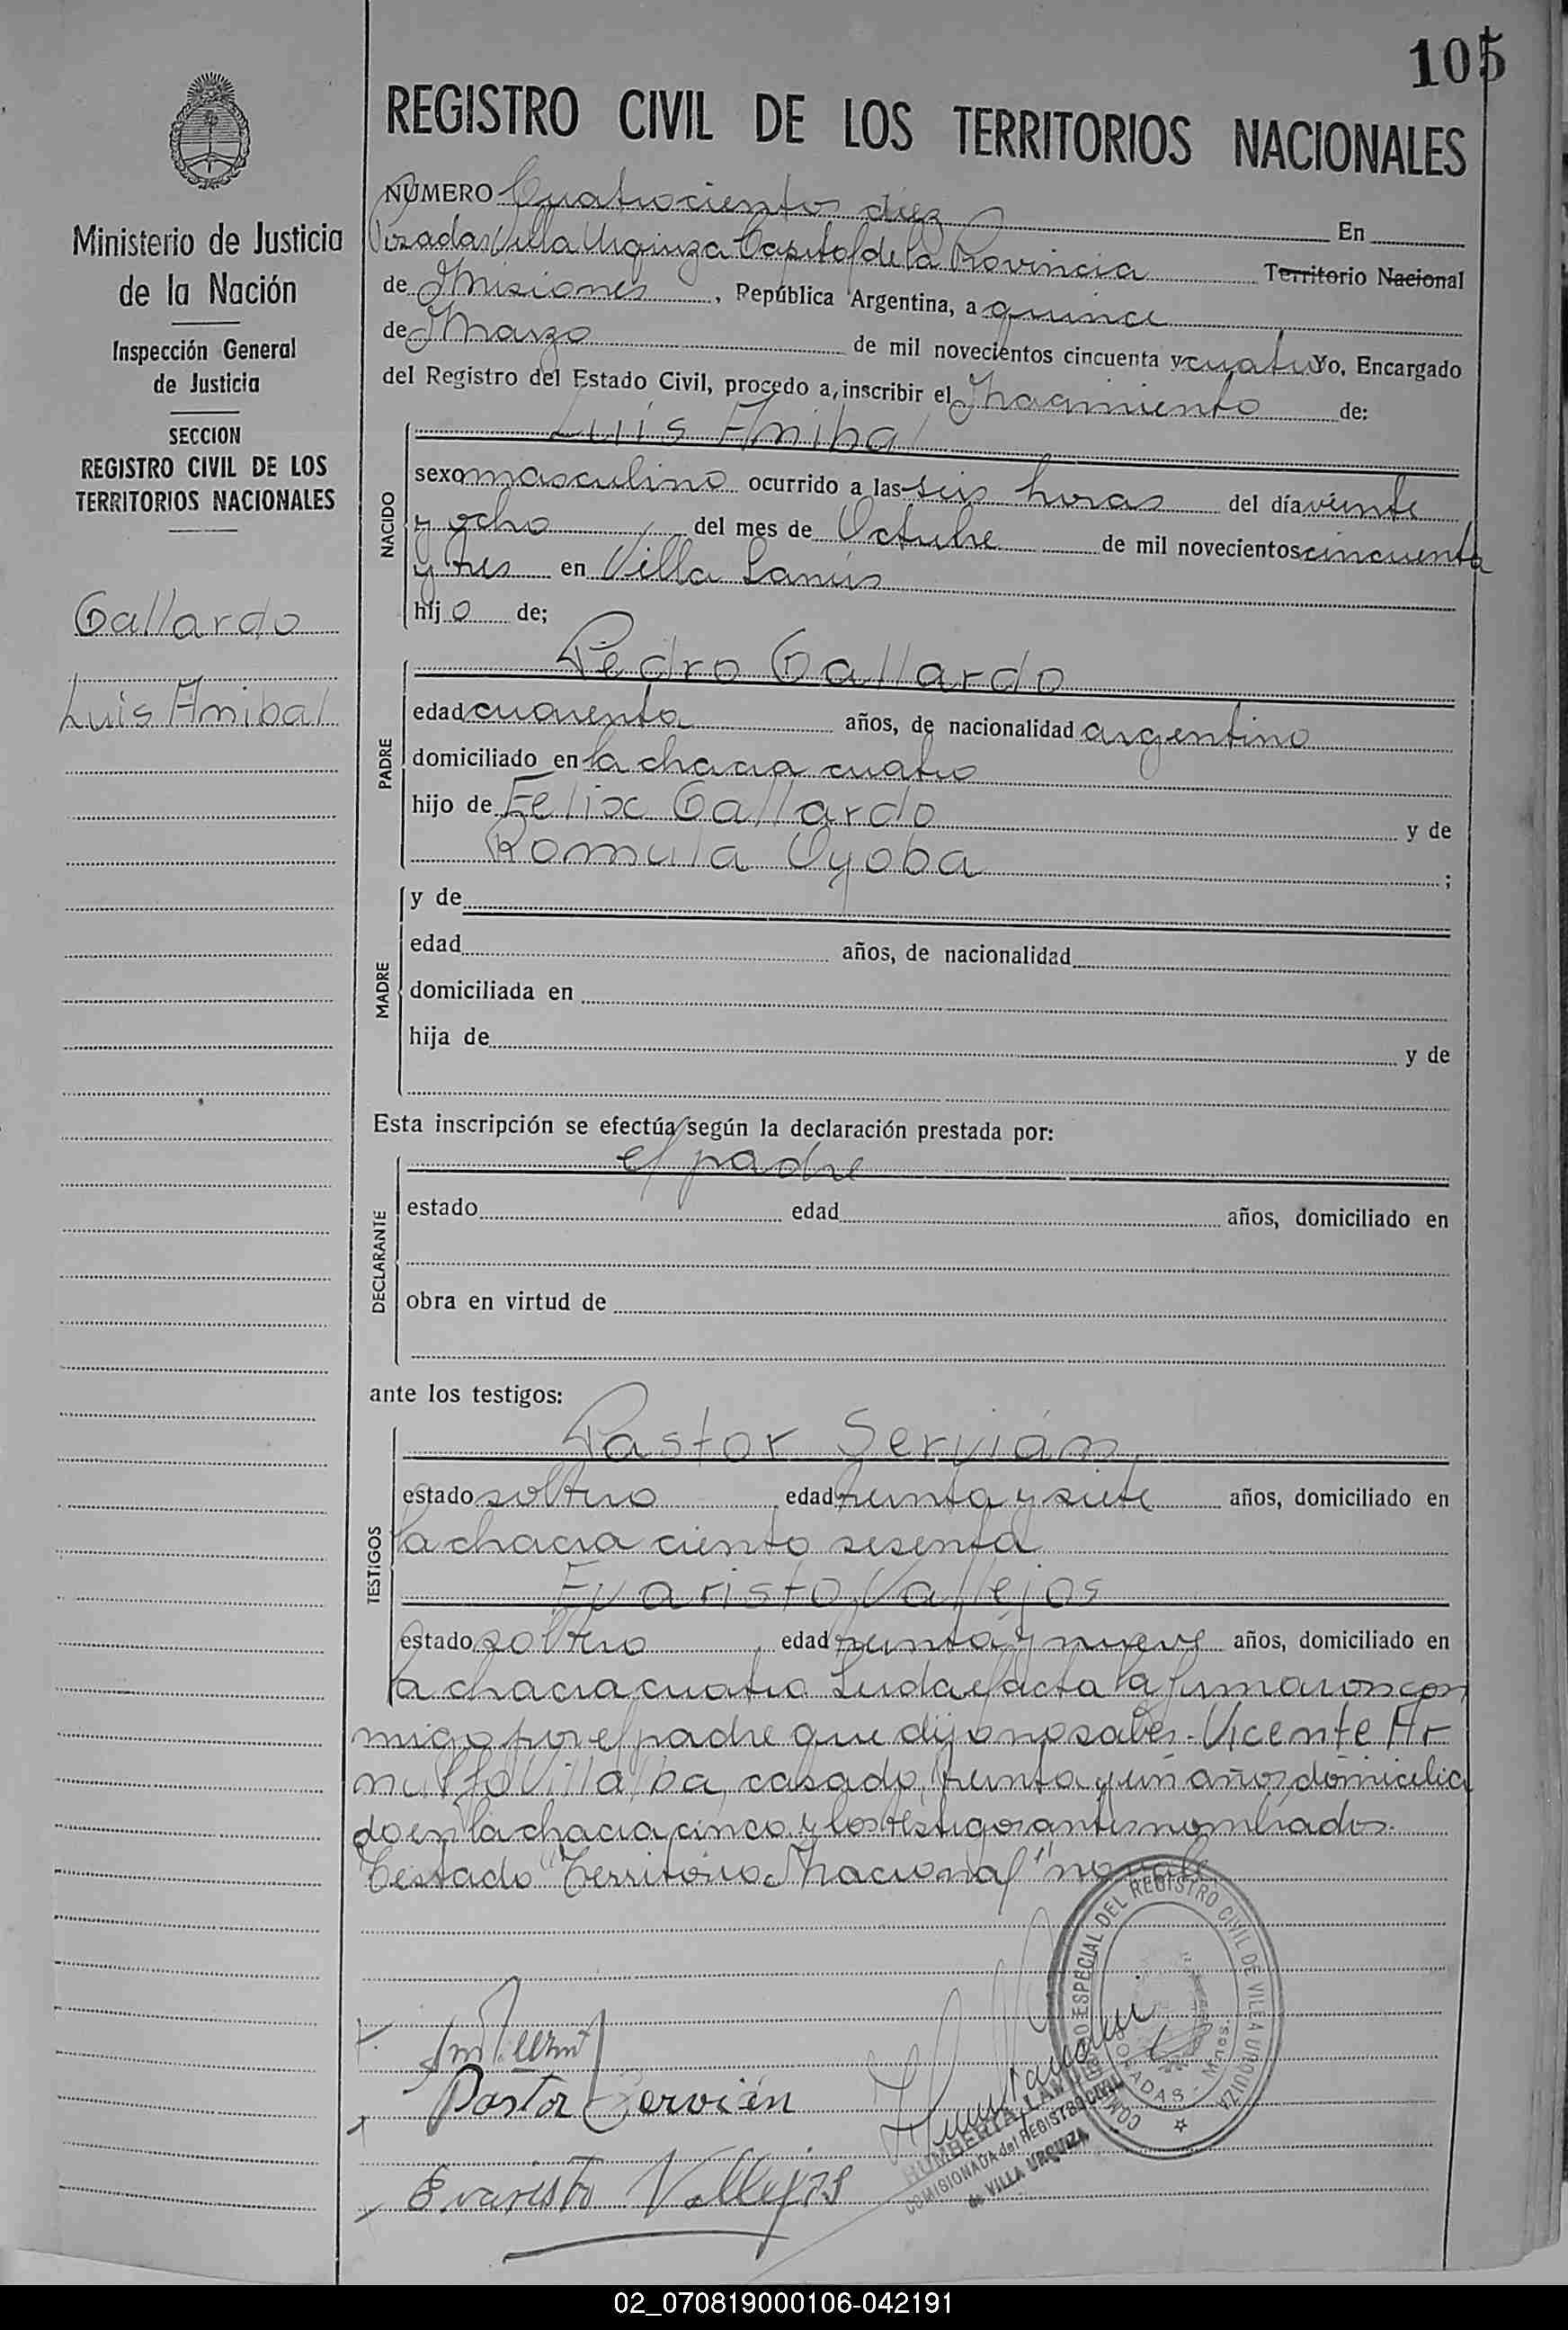 105
REGISTRO CIVIL DE LOS TERRITORIOS NACIONALES
Ministerio de Justicia
de la Nación
Inspección General
de Justicia
SECCION
REGISTRO CIVIL DE LOS
TERRITORIOS NACIONALES
Gallardo
Luis Anibal
NÚMERO Cuatrocientos diez En
Posadas Villa Urquiza Capital de la Provincia Territorio Nacional
de Misiones, República Argentina, a quince
de Marzo de mil novecientos cincuenta y cuatro Yo, Encargado
del Registro del Estado Civil, procedo a inscribir el Nacimiento de:
NACIDO
Luis Anibal
sexo masculino ocurrido a las seis horas del día veinte
y ocho del mes de Octubre de mil novecientos cincuenta
y tres en Villa Lanús
hijo de;
PADRE
Pedro Gallardo
edad cuarenta años, de nacionalidad argentino
domiciliado en la chacra cuatro
hijo de Felix Gallardo y de
Romula Oyoba ;
MADRE
y de
edad años, de nacionalidad
domiciliada en
hija de y de
Esta inscripción se efectúa según la declaración prestada por:
DECLARANTE
el padre
estado edad años, domiciliado en
obra en virtud de
ante los testigos:
TESTIGOS
Pastor Servián
estado soltero edad treinta y siete años, domiciliado en
la chacra ciento sesenta
Evaristo Vallejos
estado soltero edad treinta y nueve años, domiciliado en
la chacra cuatro Leida el acta la firmaron con
migo por el padre que dijo no saber. Vicente Ar
nulfo Villalba, casado, treinta y un años domicilia
do en la chacra cinco y los testigos antes nombrados.
Testado "Territorio Nacional" no vale
Pastor Servián
Evaristo Vallejos
COMISIONADO ESPECIAL DEL REGISTRO CIVIL DE VILLA URQUIZA
POSADAS - Mnes.
COMISIONADA del REGISTRO CIVIL
de VILLA URQUIZA
02_070819000106-042191